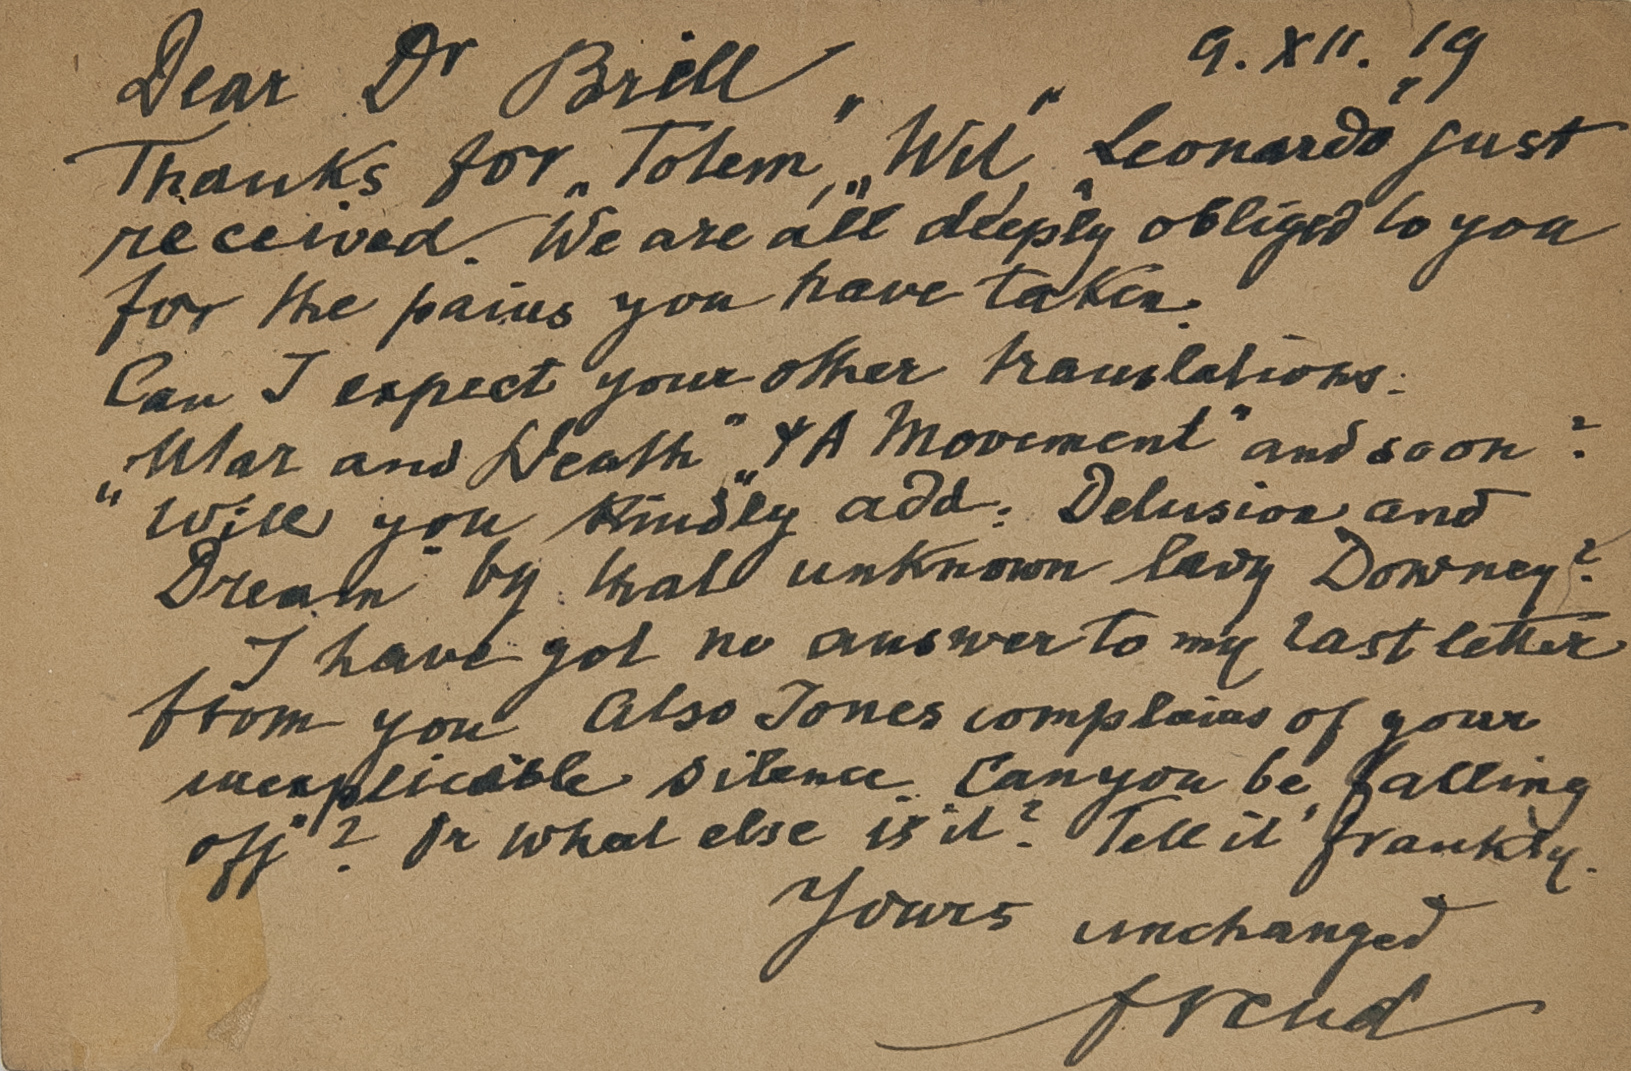 9. XII. 19
Dear Dr Brill
Thanks for „Totem", „Wit", „Leonardo" just
received. We are all deeply obliged to you
for the pains you have taken.
Can I expect your other translations:
„War and Death" „ΨA Movement" and so on?
Will you kindly add: Delusion and
Dream" by that unknown lady Downey?
I have got no answer to my last letter
from you. Also Jones complains of your
inexplicable silence. Can you be „falling
off"? Or what else is it? Tell it frankly.
Yours unchanged
Freud